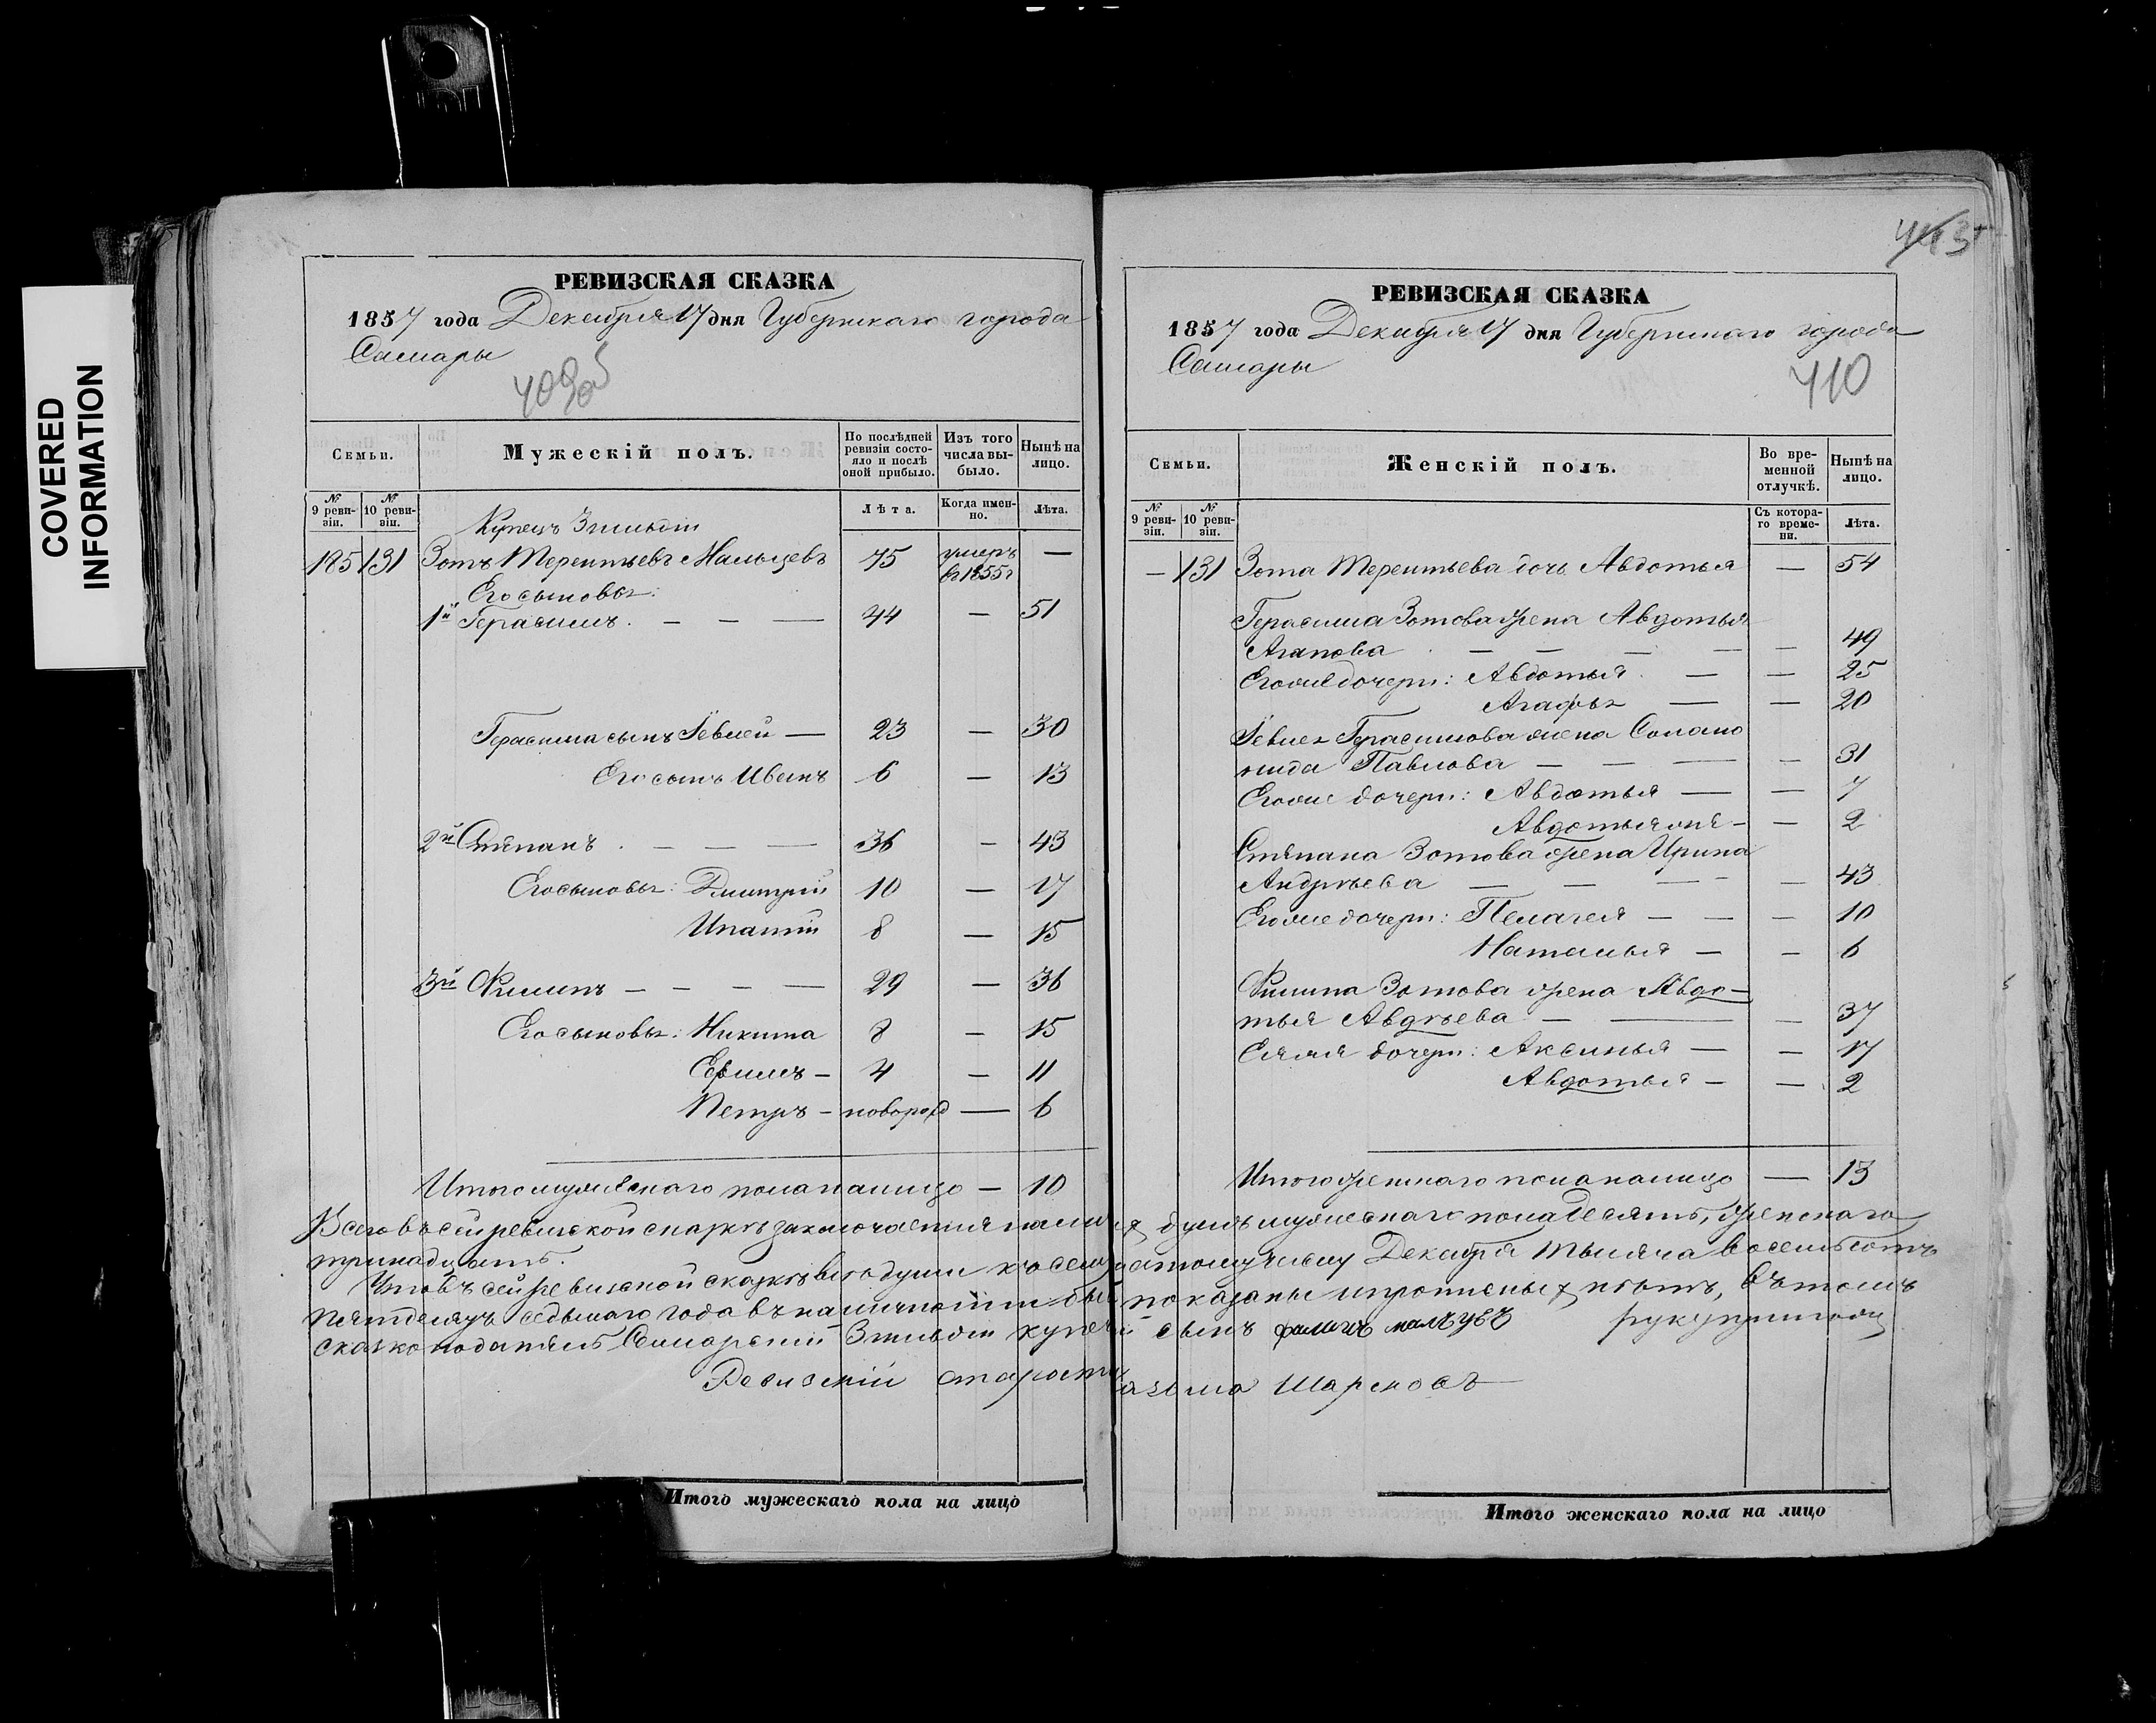 COVERED
INFORMATION
РЕВИЗСКАЯ СКАЗКА
1857 года Декабря 17 дня Губернскаго города
Самары
409об
Семьи.
Мужескій полъ.
По послѣдней ревизіи состояло и послѣ оной прибыло.
Изъ того числа выбыло.
Нынѣ на лицо.
№ 9 ревизіи.
№ 10 ревизіи.
Лѣта.
Когда именно.
Лѣта.
Купецъ 3 гильдіи
185 131 Зотъ Терентьевъ Мальцевъ 75 умеръ въ 1855 г —
Его сыновья:
1й Герасимъ. — — — 44 — 51
Герасима сынъ Іевлей — 23 — 30
Его сынъ Иванъ 6 — 13
2й Степанъ . — — — 36 — 43
Его сыновья: Дмитрій 10 — 17
Ипатій 8 — 15
3й Филипъ — — — — 29 — 36
Его сыновья: Никита 8 — 15
Ефимъ — 4 — 11
Петръ — новорожд — 6
Итого мужескаго пола налицо — 10
РЕВИЗСКАЯ СКАЗКА
1857 года Декабря 17 дня Губернскаго города
Самары
410
Семьи.
Женскій полъ.
Во временной отлучкѣ.
Нынѣ на лицо.
№ 9 ревизіи.
№ 10 ревизіи.
Съ котораго времени.
Лѣта.
— 131 Зота Терентьева дочь Авдотья — 54
Герасима Зотова жена Авдотья
Агапова — — — — — 49
Его же дочери: Авдотья — — 25
Агафья — — 20
Іевлея Герасимова жена Соломо
нида Павлова — — — — 31
Его же дочери: Авдотья — — 7
Авдотья же — — 2
Степана Зотова жена Ирина
Андреева — — — — 43
Его же дочери: Пелагея — — — 10
Наталья — — 6
Филипа Зотова жена Авдо-
тья Авдѣева — — — 37
Ея же дочери: Аксинья — — 17
Авдотья — — 2
Итого женскаго пола налицо — 13
Всего въ сей ревизской сказкѣ заключается налицо душъ мужескаго пола десять, женскаго
тринадцать.
Что въ сей ревизской сказкѣ всѣ души къ семнадцатому числу Декабря тысяча восемьсотъ
пятдесятъ седьмаго года въ наличности показаны и прописныхъ нѣтъ, въ томъ
сказкоподатель Самарскій 3 гильдіи купечій сынъ филипъ малцевъ руку приложилъ
Ревизскій староста Шарковъ
Итого мужескаго пола на лицо
Итого женскаго пола на лицо